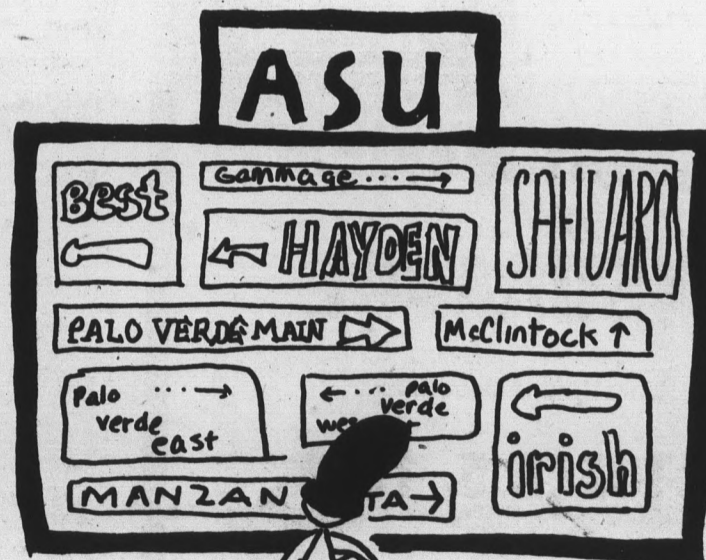 ASU
Best
Gammage
HAYDEN
SAHUARO
PALO VERDE MAIN
McClintock
Palo
verde
east
palo
verde
irish
MANZAN TA